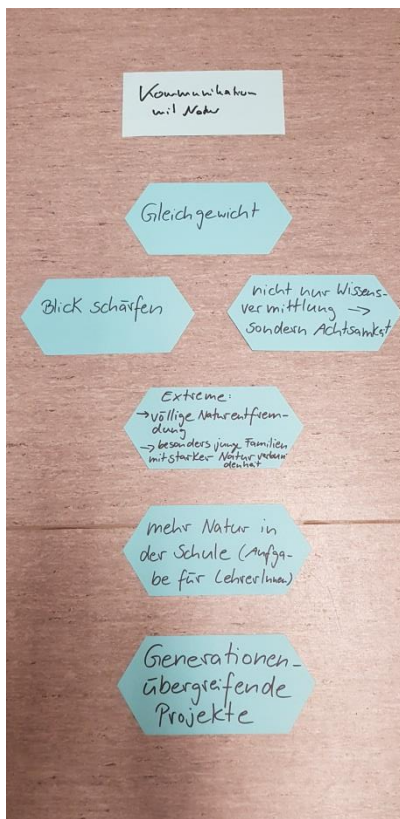 Kommunikation
mit Natur
Gleichgewicht
Blick schärfen
nicht nur Wissens-
vermittlung →
sondern Achtsamkeit
Extreme:
→ völlige Naturentfrem-
dung
→ besonders junge Familien
mit starker Naturverbun
denheit
mehr Natur in
der Schule (Aufga-
be für LehrerInnen)
Generationen-
übergreifende
Projekte